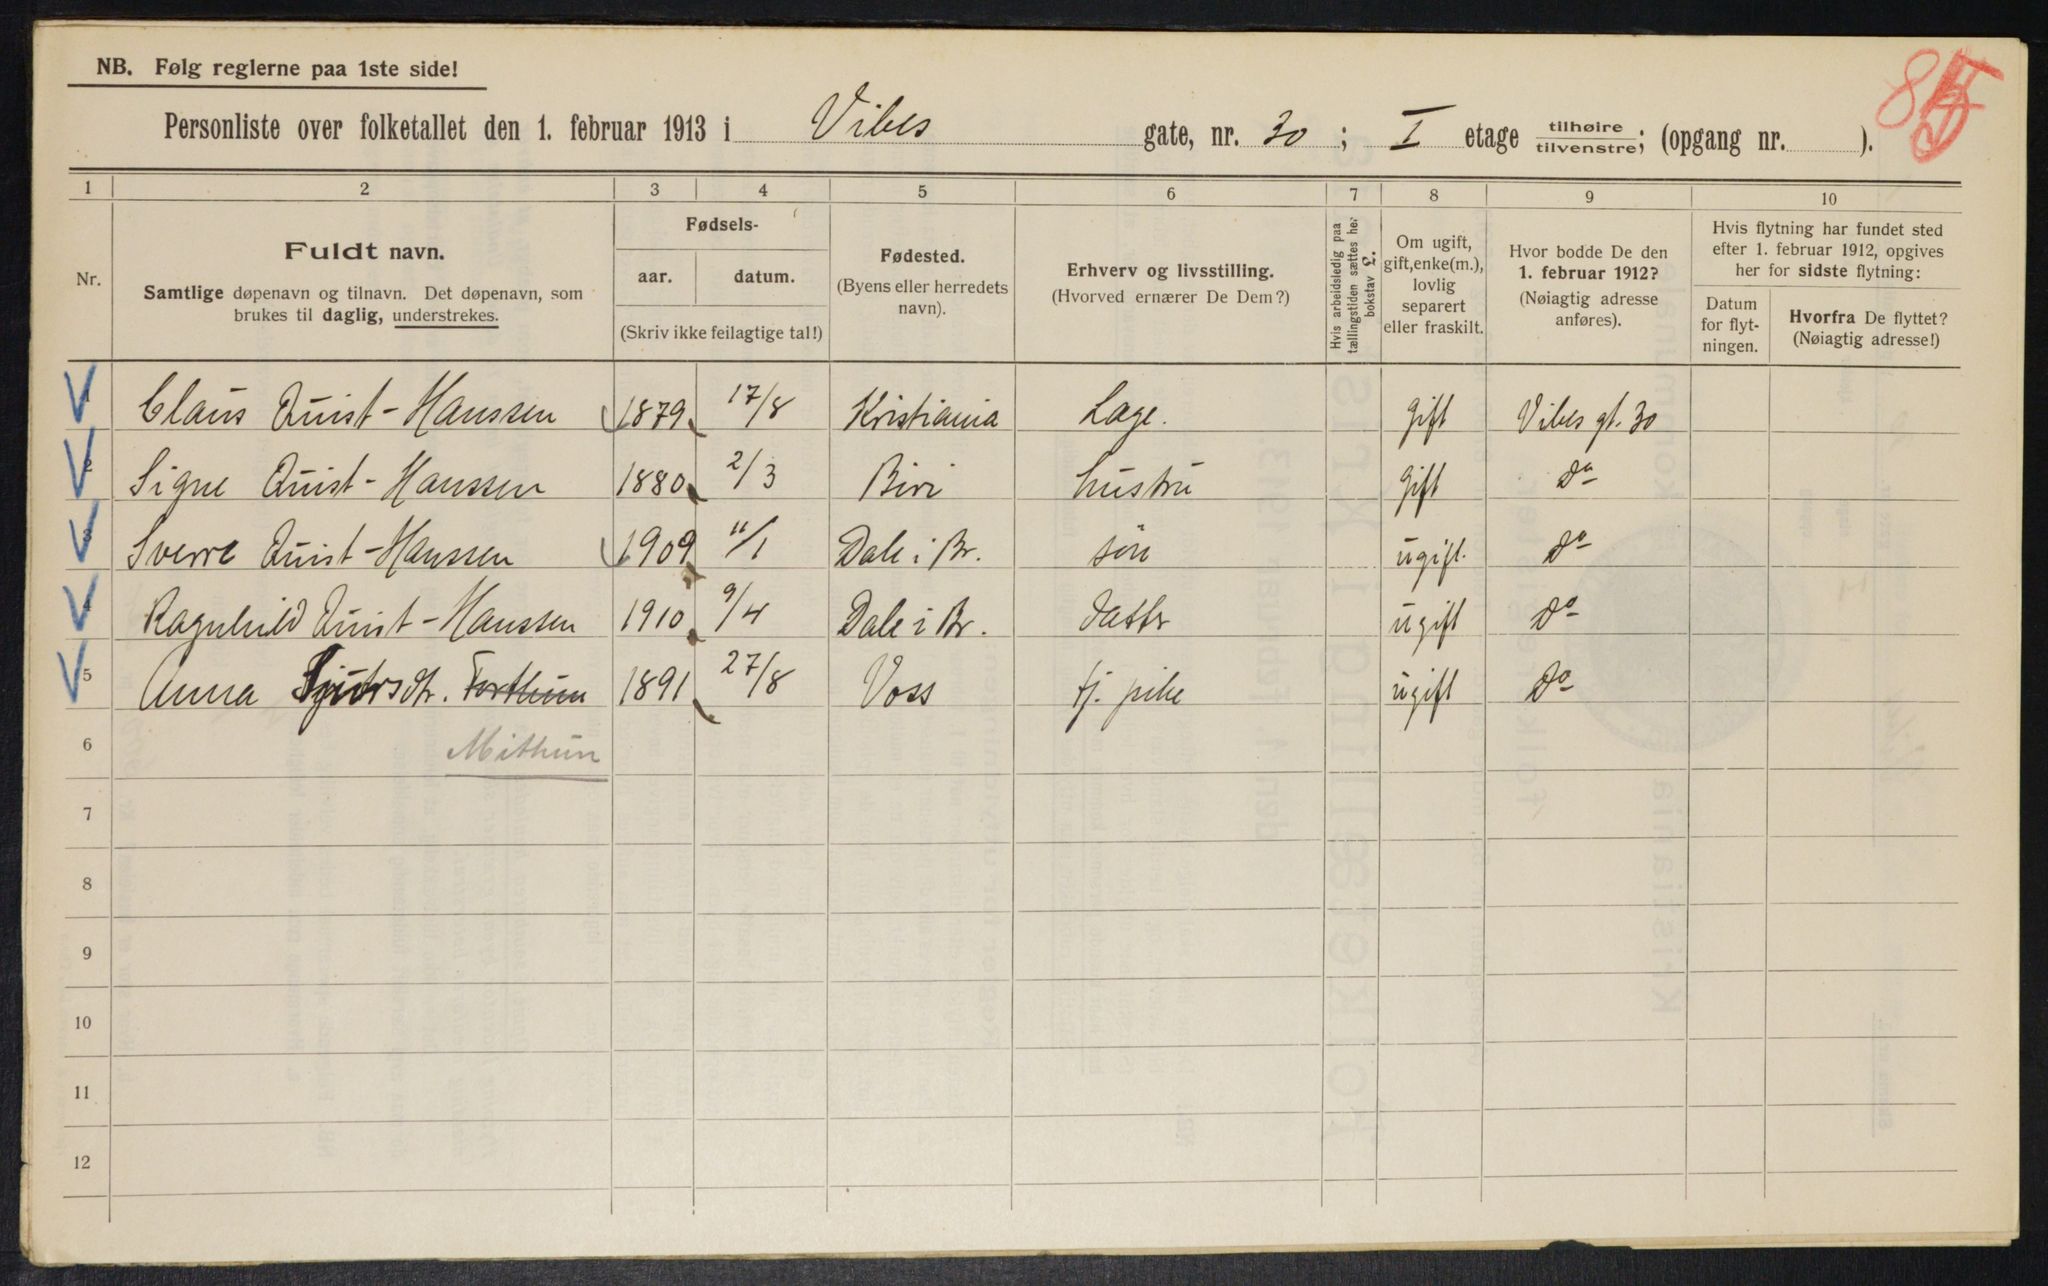 NB. Følg reglerne paa 1ste side!
85
Personliste over folketallet den 1. februar 1913 i Vibes gate, nr. 30 ; I etage tilhøire tilvenstre; (opgang nr. ).
1 2 3 4 5 6 7 8 9 10
Nr.
Fuldt navn.
Samtlige døpenavn og tilnavn. Det døpenavn, som
brukes til daglig, understrekes.
Fødsels-
aar. datum.
(Skriv ikke feilagtige tal!)
Fødested.
(Byens eller herredets
navn).
Erhverv og livsstilling.
(Hvorved ernærer De Dem?)
Hvis arbeidsledig paa
tællingstiden sættes her
bokstav L.
Om ugift,
gift, enke(m.),
lovlig
separert
eller fraskilt.
Hvor bodde De den
1. februar 1912?
(Nøiagtig adresse
anføres).
Hvis flytning har fundet sted
efter 1. februar 1912, opgives
her for sidste flytning:
Datum
for flyt-
ningen.
Hvorfra De flyttet?
(Nøiagtig adresse!)
1 Claus Quist-Hanssen 1879 17/8 Kristiania Læge. gift Vibes gt. 30
2 Signe Quist-Hanssen 1880 2/3 Biri hustru gift Do
3 Sverre Quist-Hanssen 1909 11/1 Dale i Br. søn ugift. Do
4 Ragnhild Quist-Hanssen 1910 9/4 Dale i Br. datter ugift Do
5 Anna Sjursdtr. Forthun 1891 27/8 Voss tj. pike ugift Do
6 Mithun
7
8
9
10
11
12